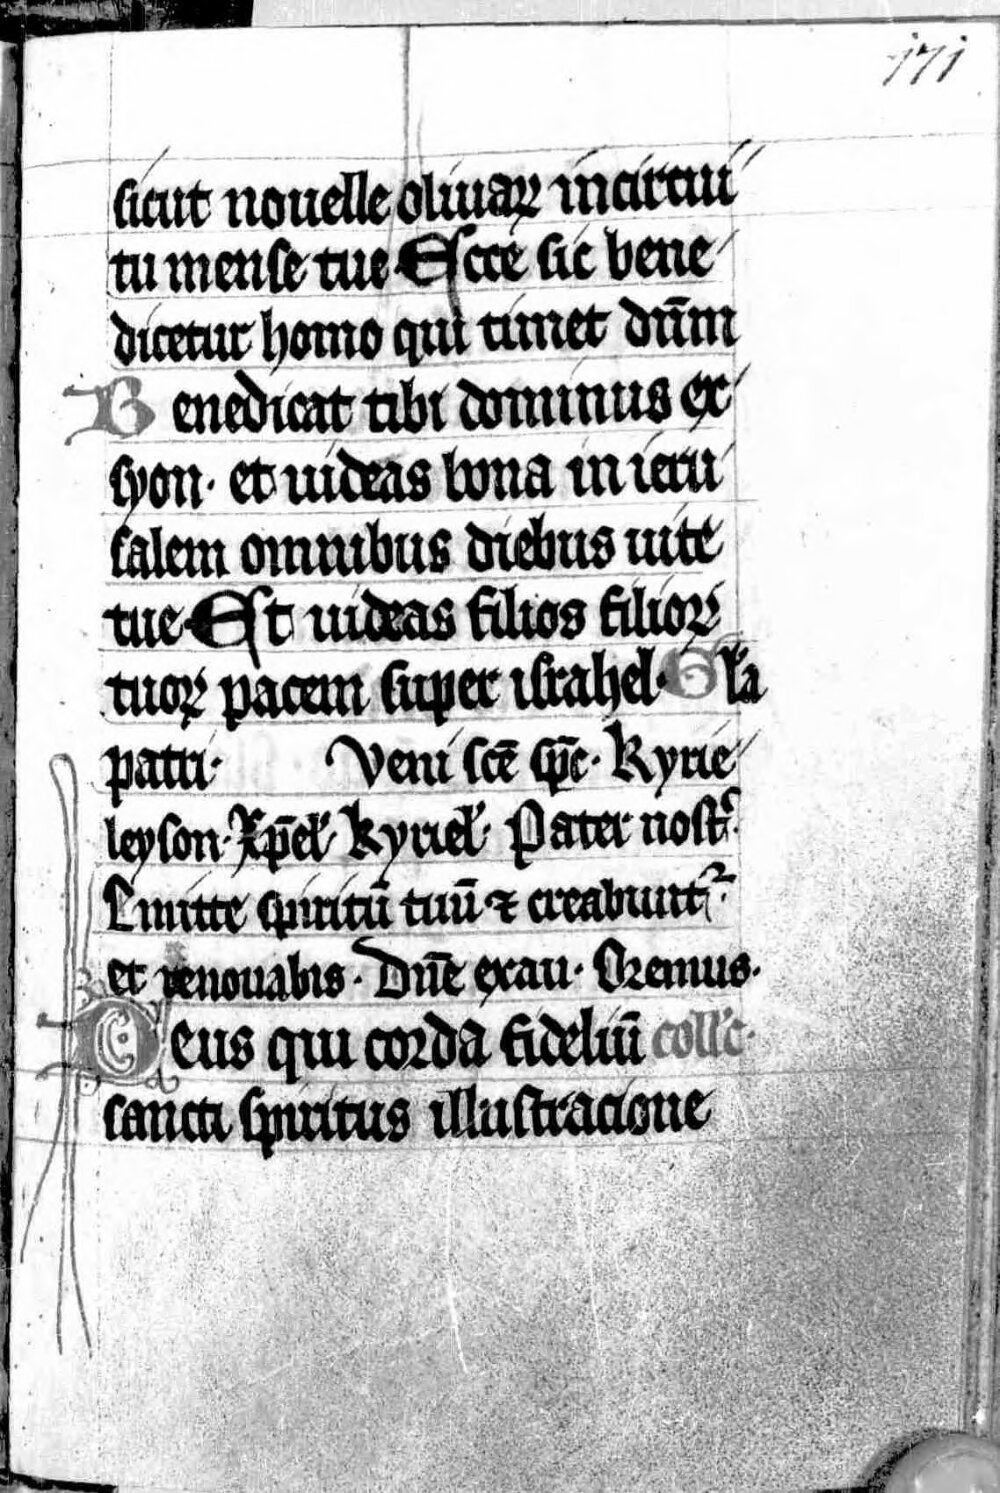 171
sicut nouelle oliuaꝝ in circui
tu mense tue Ecce sic bene
dicetur homo qui timet dn̄m
Benedicat tibi dominus ex
syon· et uideas bona in ieru
salem omnibus diebus uite
tue· Et uideas filios filioꝝ
tuoꝝ pacem super israhel· Gl'a
patri· Veni scē sp̄c· Kyrie
leyson· Xp̄el'· Kyriel'· Pater nost'·
Emitte spiritū tuū ⁊ creabunt᷑·
et renouabis· Dn̄e exau· Oremus·
Deus qui corda fideliū coll'c·
sancti spiritus illustracione